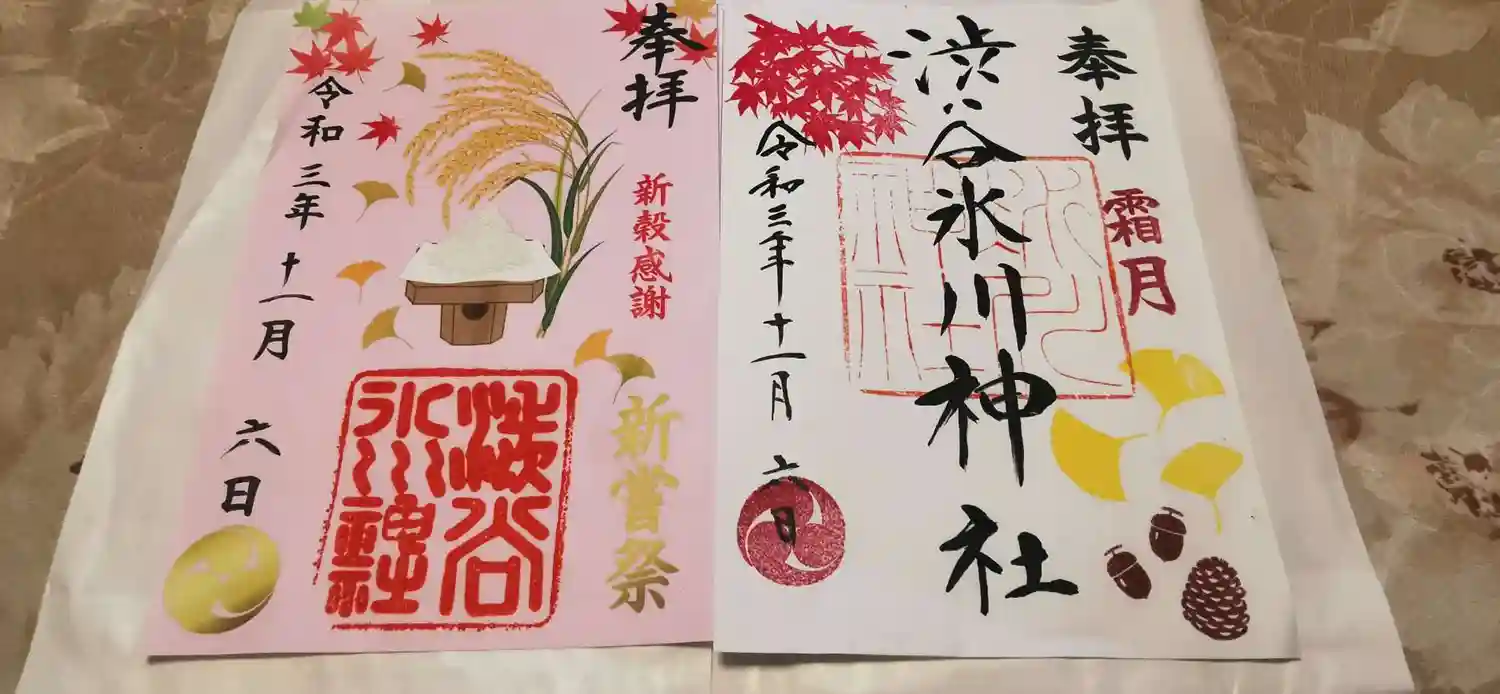 奉拝
霜月
渋谷氷川神社
令和三年十一月六日
奉拝
新穀感謝
新嘗祭
渋谷
氷川神社
令和三年十一月六日